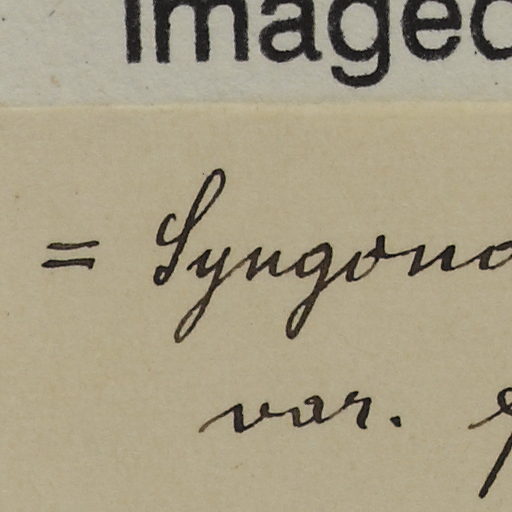 Imaged
= Syngona
var.